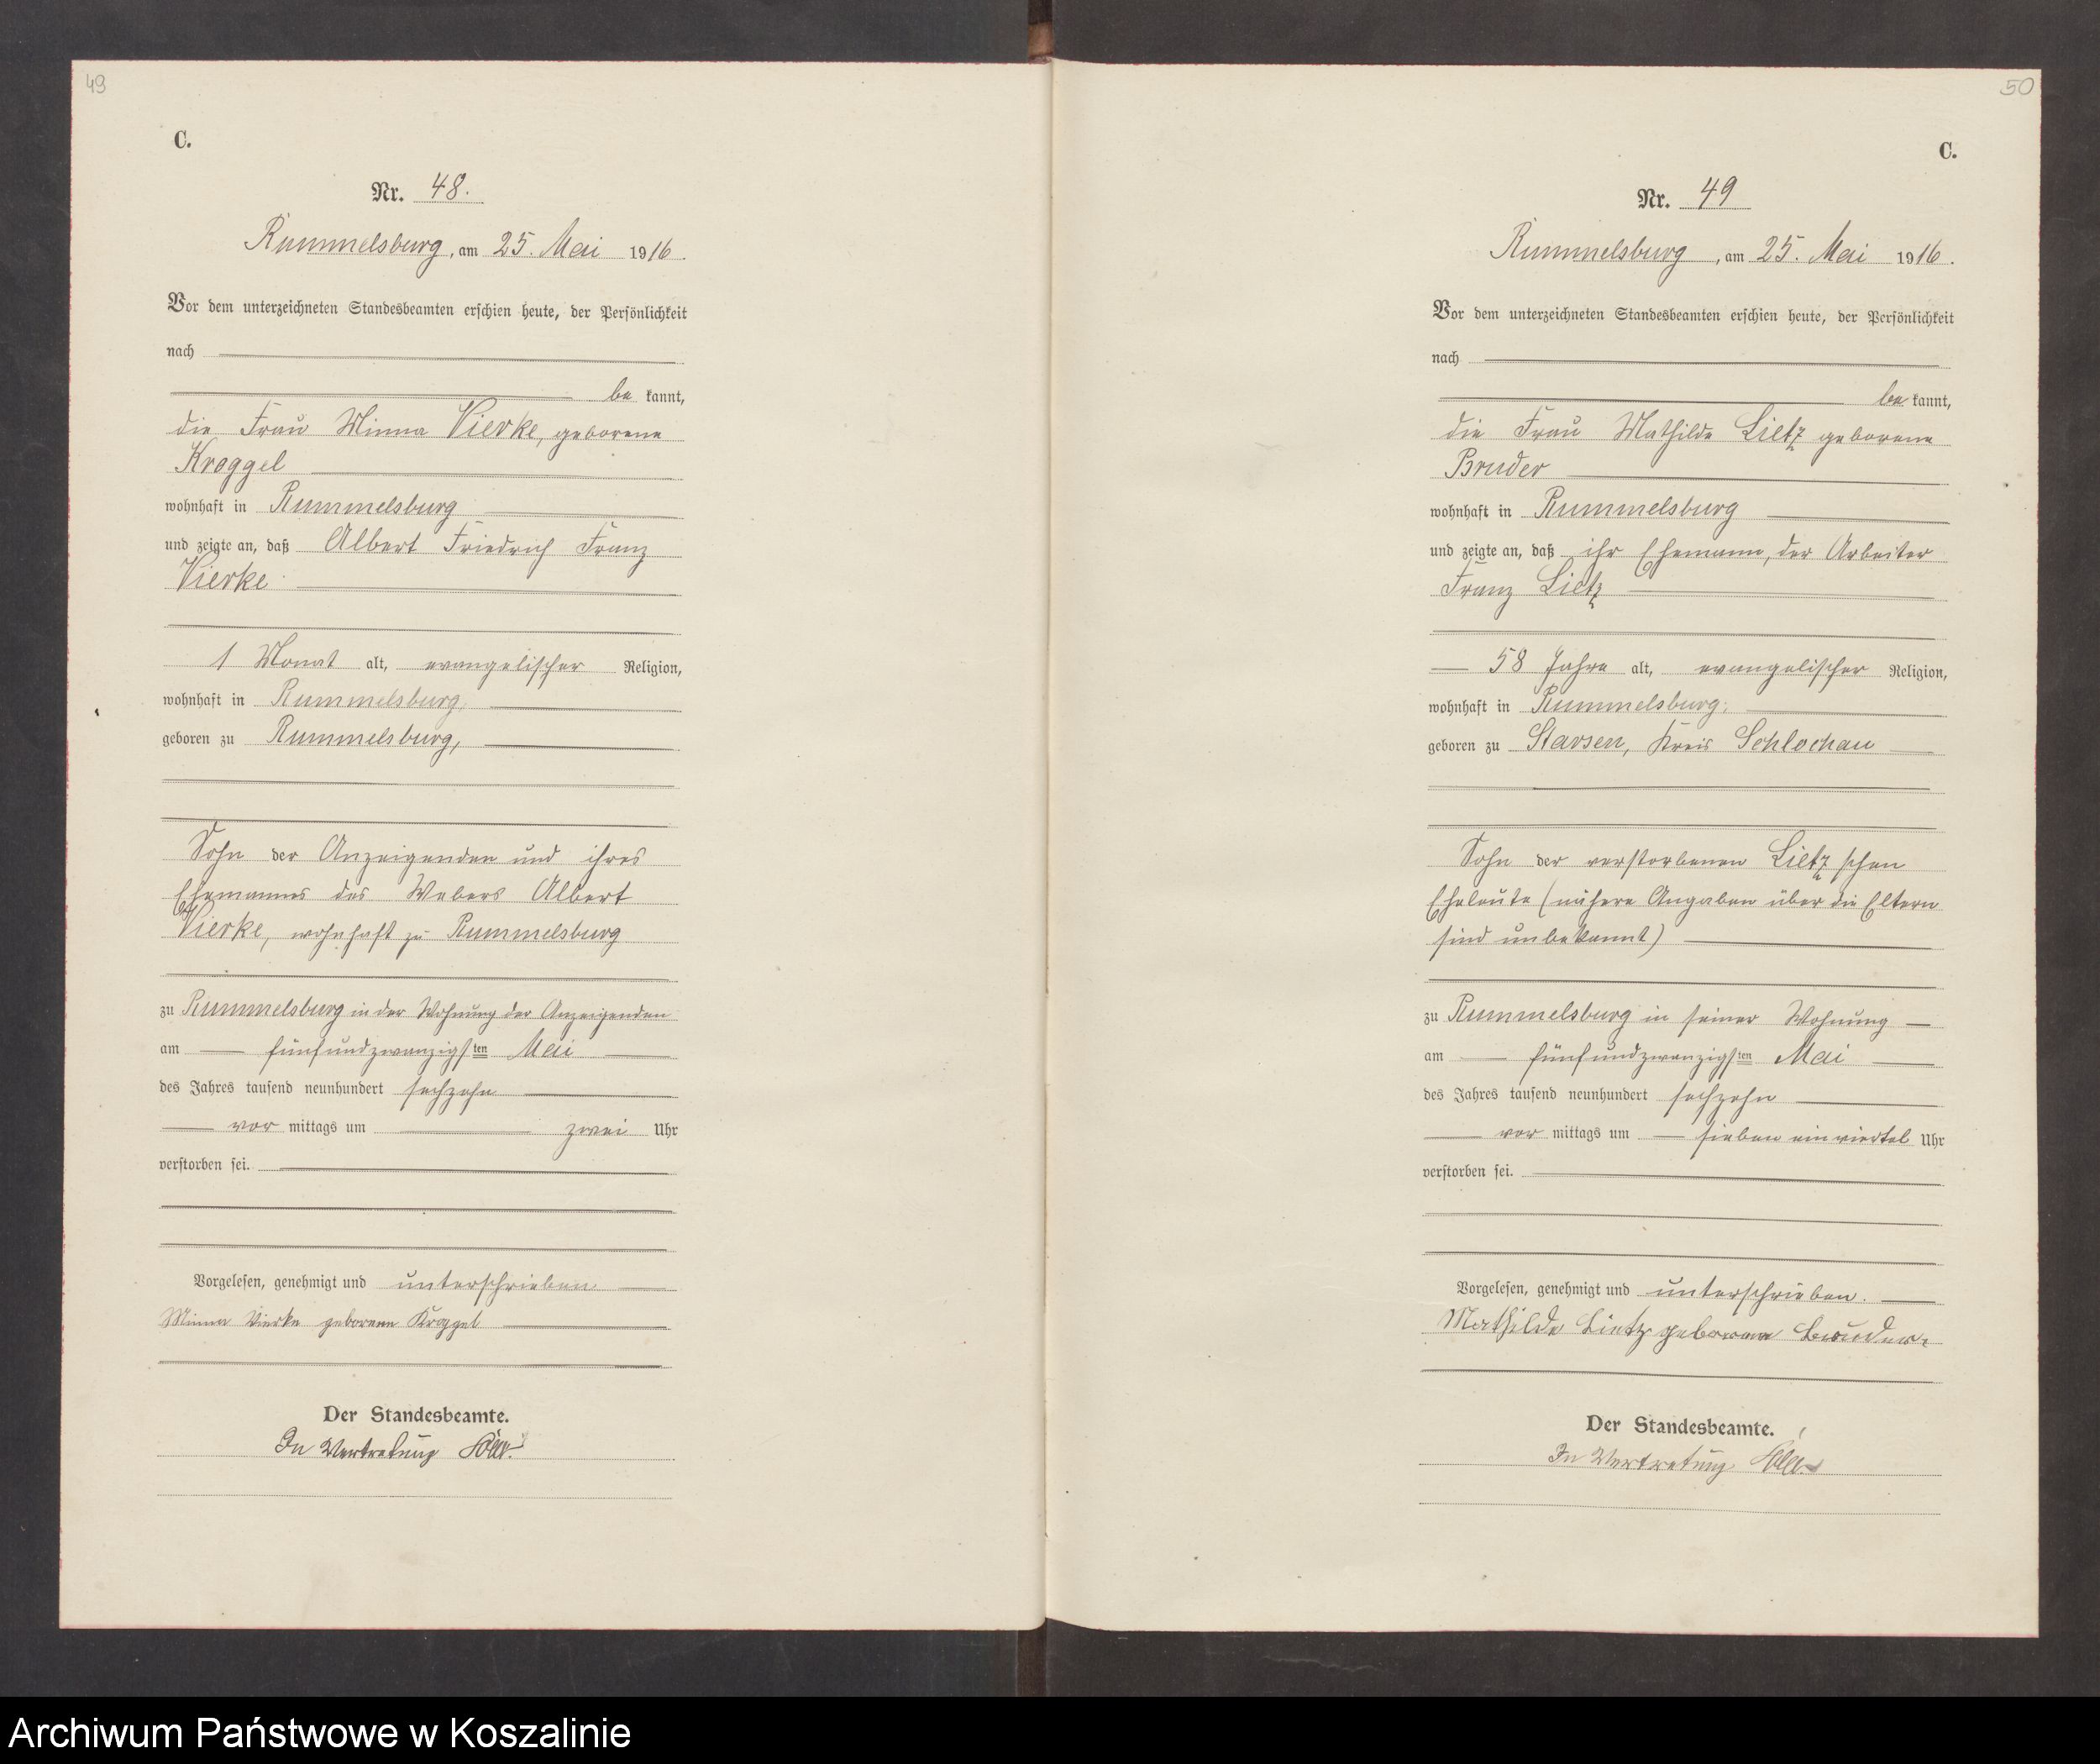 49
C.
Nr. 48.
Rummelsburg, am 25. Mai 1916.
Vor dem unterzeichneten Standesbeamten erschien heute, der Persönlichkeit
nach
be kannt,
die Frau Minna Vierke, geborene
Kroggel
wohnhaft in Rummelsburg
und zeigte an, daß Albert Friedrich Franz
Vierke
1 Monat alt, evangelischer Religion,
wohnhaft in Rummelsburg,
geboren zu Rummelsburg,
Sohn der Anzeigenden und ihres
Ehemannes des Webers Albert
Vierke, wohnhaft zu Rummelsburg
zu Rummelsburg in der Wohnung der Anzeigenden
am fünfundzwanzigsten Mai
des Jahres tausend neunhundert sechzehn
vor mittags um zwei Uhr
verstorben sei.
Vorgelesen, genehmigt und unterschrieben
Minna Vierke geborene Kroggel
Der Standesbeamte.
In Vertretung
50
C.
Nr. 49
Rummelsburg, am 25. Mai 1916.
Vor dem unterzeichneten Standesbeamten erschien heute, der Persönlichkeit
nach
be kannt,
die Frau Mathilde Lietz geborene
Bruder
wohnhaft in Rummelsburg
und zeigte an, daß ihr Ehemann, der Arbeiter
Franz Lietz
58 Jahre alt, evangelischer Religion,
wohnhaft in Rummelsburg,
geboren zu Starsen, Kreis Schlochau
Sohn der verstorbenen Lietz'schen
Eheleute (nähere Angaben über die Eltern
sind unbekannt)
zu Rummelsburg in seiner Wohnung
am fünfundzwanzigsten Mai
des Jahres tausend neunhundert sechzehn
vor mittags um sieben einviertel Uhr
verstorben sei.
Vorgelesen, genehmigt und unterschrieben.
Mathilde Lietz geborene Bruder.
Der Standesbeamte.
In Vertretung
Archiwum Państwowe w Koszalinie